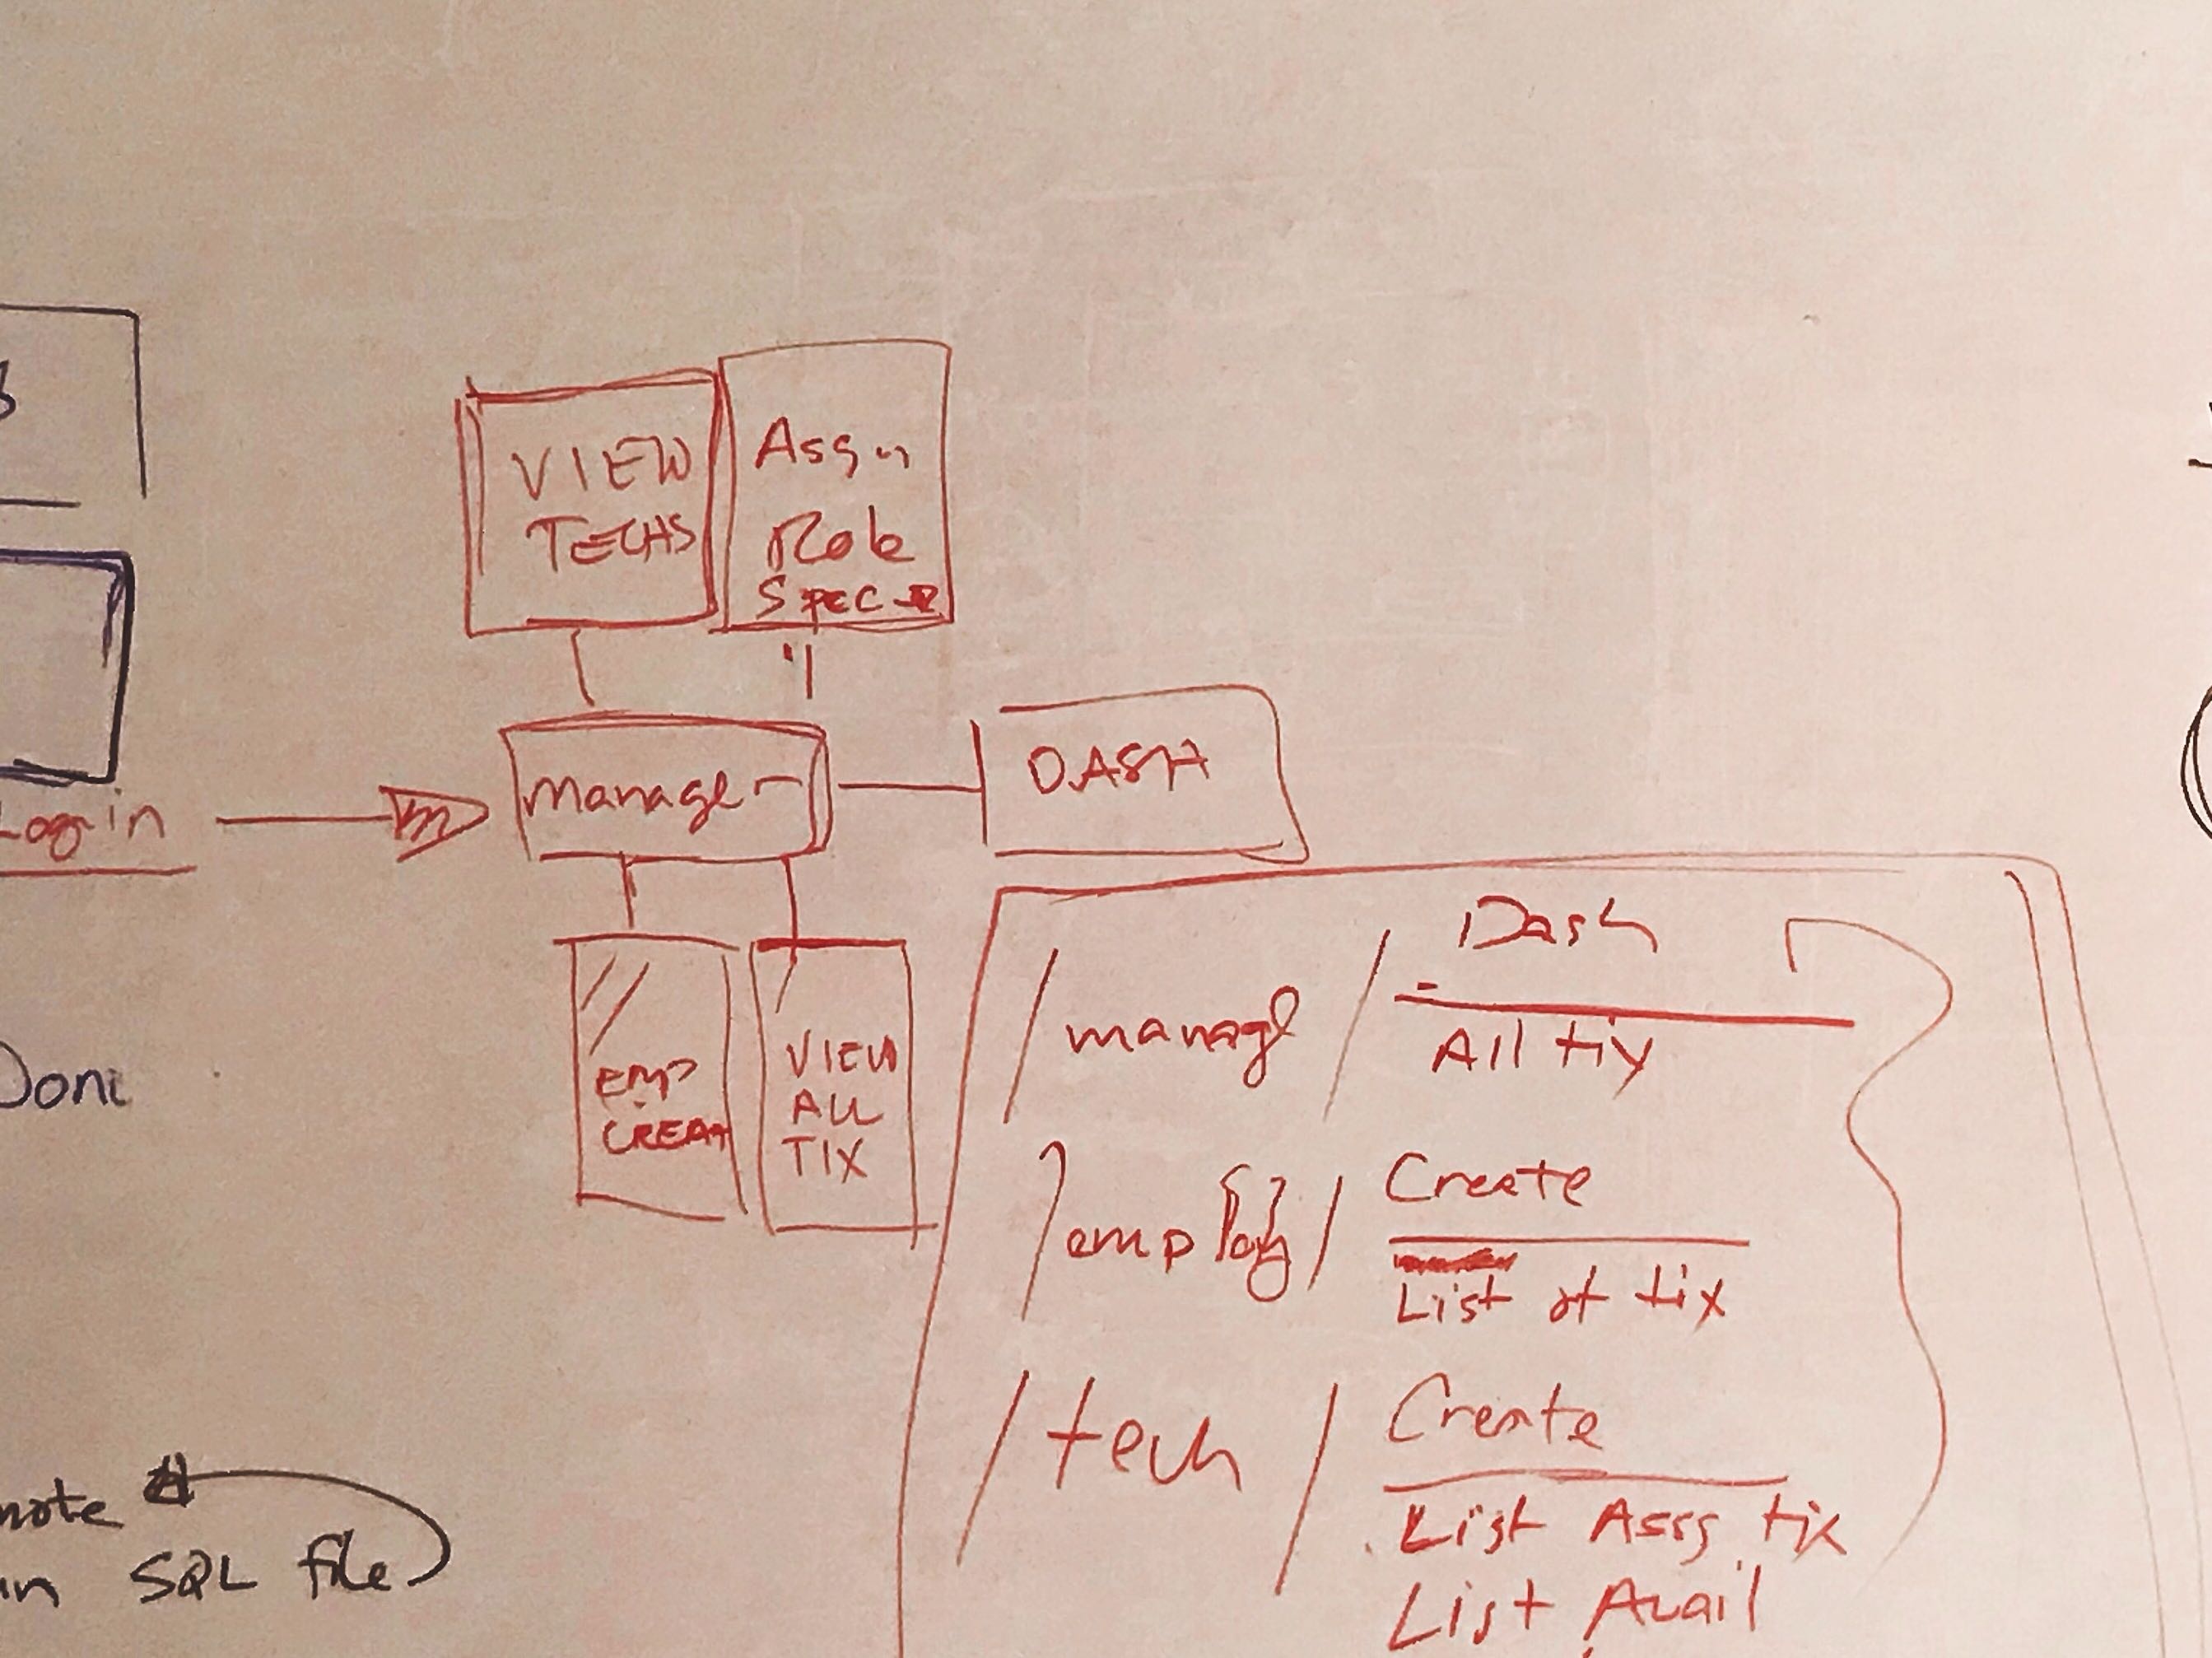 VIEW
TECHS
Assn
Role
Spec
Login
manager
DASH
EMP
CREAT
VIEW
ALL
TIX
/ manage /
Dash
All tix
/ employ /
Create
List of tix
/ tech /
Create
List Assg tix
List Avail
Done
note
in SQL file